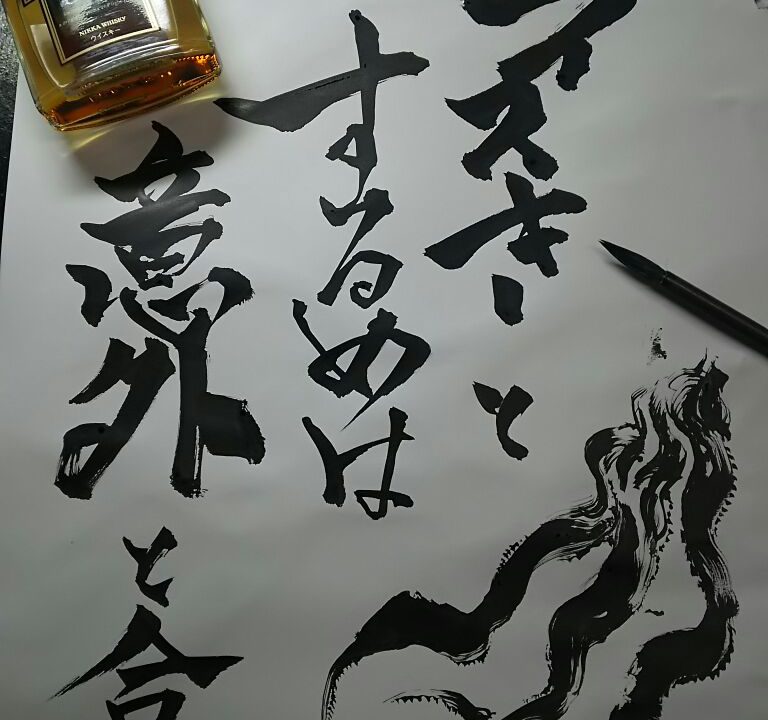 イスキーと
するめは
意外と合
NIKKA WHISKY
ウイスキー